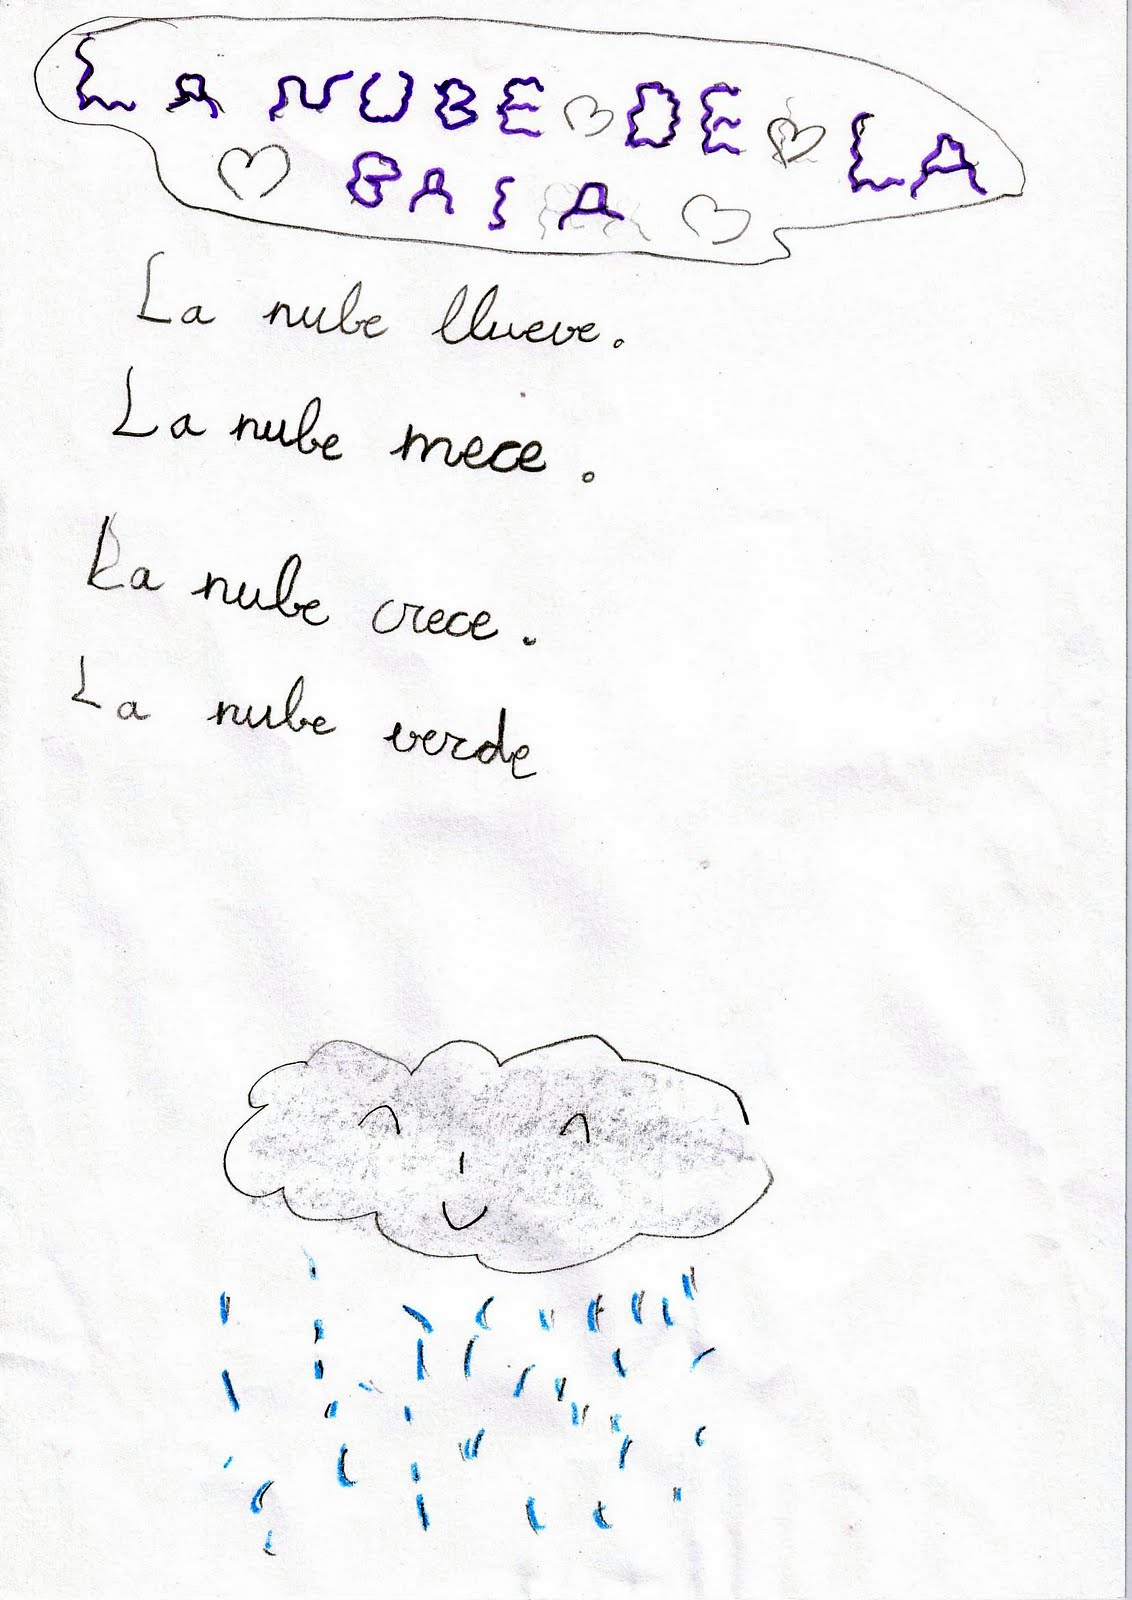 LA NUBE DE LA
GAIA
La nube llueve.
La nube mece.
La nube crece.
La nube verde